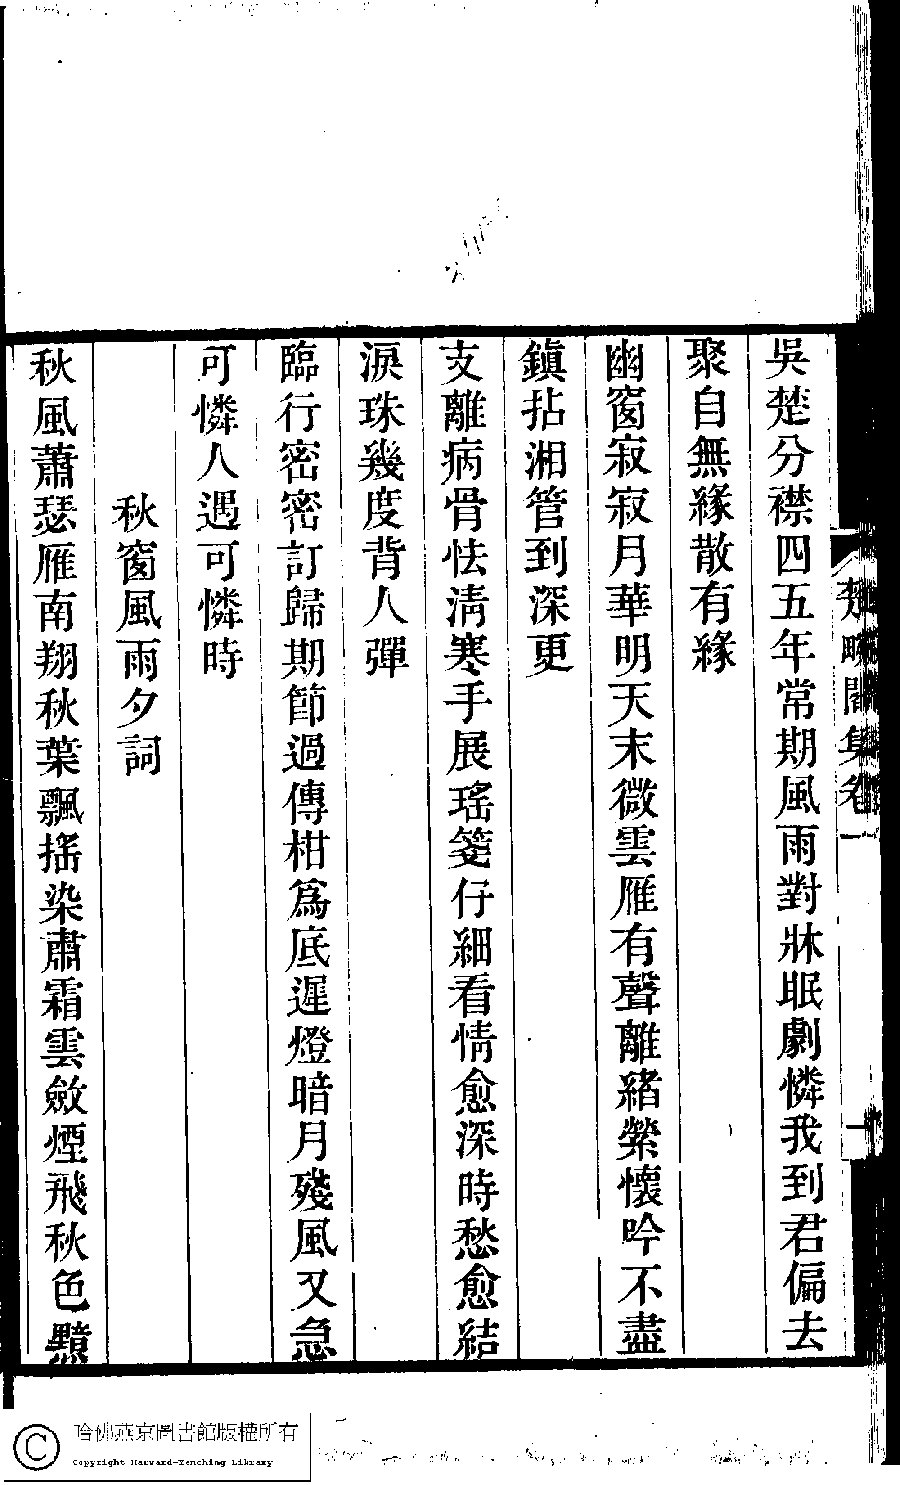 吳楚分襟四五年常期風雨對牀眠劇憐我到君偏去
聚自無緣散有緣
幽窗寂寂月華明天末微雲雁有聲離緒縈懷吟不盡
鎮拈湘管到深更
支離病骨怯淸寒手展瑤箋仔細看情愈深時愁愈結
淚珠幾度背人彈
臨行密密訂歸期節過傳柑爲底遲燈暗月殘風又急
可憐人遇可憐時
秋窗風雨夕詞
秋風蕭瑟雁南翔秋葉飄搖染肅霜雲斂煙飛秋色黯
閣集卷一
一
哈佛燕京圖書館版權所有
Copyright Harvard-Yenching Library